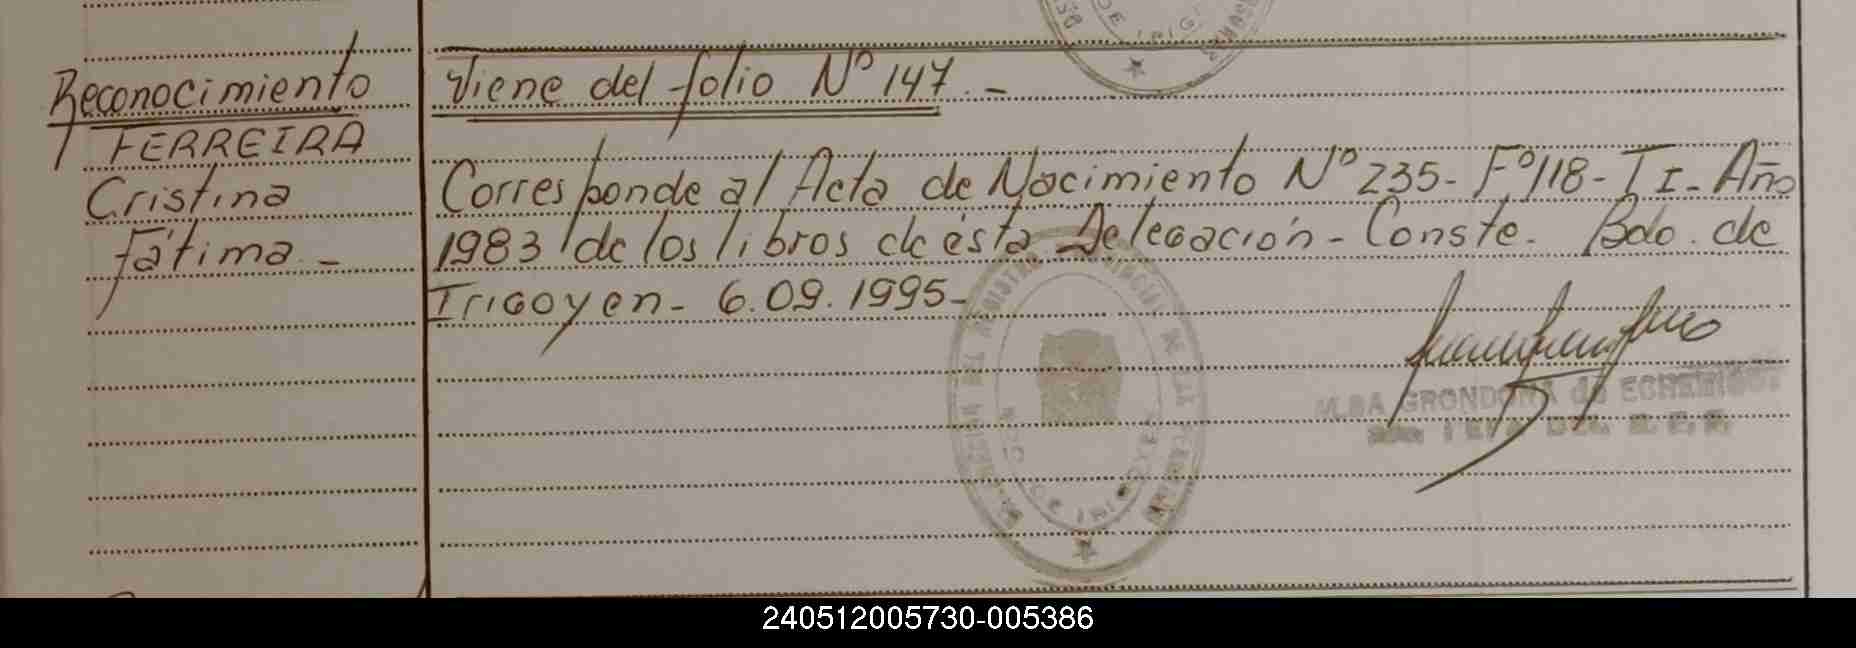 Reconocimiento
FERREIRA
Cristina
Fátima. -
Viene del folio Nº 147. -
Corresponde al Acta de Nacimiento Nº 235- Fº 118- T I- Año
1983 de los libros de ésta Delegación- Conste. Bdo. de
Irigoyen- 6.09.1995-
GRONDONA de
240512005730-005386